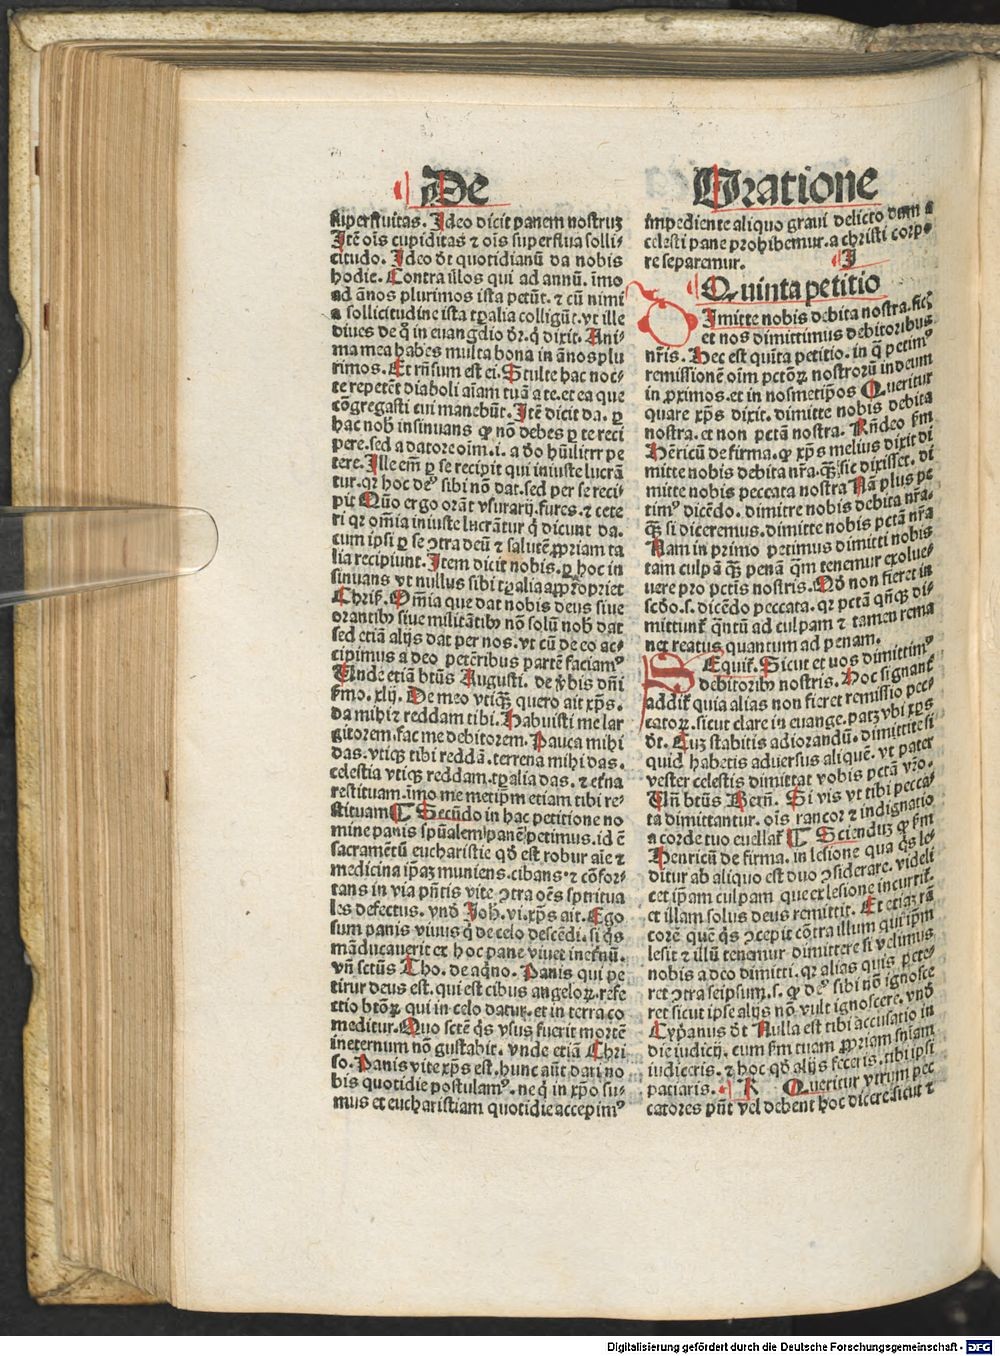 De
superfluitas. Ideo dicit panem nostruꝫ
Itē oīs cupiditas ⁊ oīs superflua solli⸗
citudo. Ideo dr̄ quotidianū da nobis
hodie. Contra illos qui ad annū. īmo
ad ānos plurimos ista petūt. ⁊ cū nimi
a sollicitudine ista tp̄alia colligūt. vt ille
diues de q̄ in euangelio dr̄. q̄ dixit. Ani⸗
ma mea habes multa bona in ānos plu
rimos. Et rn̄sum est ei. Stulte hac noc⸗
te repetēt diaboli aīam tuā a te. et ea que
cōgregasti cui manebūt. Itē dicit da. ꝑ
hac nob̄ insinuans ꝙ nō debes ꝑ te reci
pere. sed a datore oīm. i. a dō hūilitrr pe
tere. Ille em̄ ꝑ se recipit qui iniuste lucrā
tur. qꝛ hoc deꝰ sibi nō dat. sed per se reci⸗
pit Quō ergo orāt vsurarij. fures. ⁊ cete
ri qꝛ om̄ia iniuste lucrātur q̄ dicunt da.
cum ipsi ꝑ se ꝯtra deū ⁊ salutē ꝓpriam ta
lia recipiunt. Item dicit nobis. ꝑ hoc in
sinuans vt nullus sibi tp̄alia appropriet
Chriſ. Om̄ia que dat nobis deus siue
orantibꝰ siue militātibꝰ nō solū nob̄ dat
sed etiā alijs dat per nos. vt cū de eo ac⸗
cipimus a deo petētibus partē faciamꝰ
Unde etiā btūs Augusti. de v̄bis dn̄i
ẜmo. xlij. De meo vtiqꝫ quero ait xp̄s.
da mihi ⁊ reddam tibi. Habuisti me lar
gitorem. fac me debitorem. Pauca mihi
das. vtiqꝫ tibi reddā. terrena mihi das.
celestia vtiqꝫ reddam. tp̄alia das. ⁊ etn̄a
restituam. īmo me metip̄m etiam tibi re⸗
stituam ¶ Secūdo in hac petitione no
mine panis spūalem panē petimus. id ē
sacramētū eucharistie qd̄ est robur aīe ⁊
medicina ip̄aꝫ muniens. cibans. ⁊ cōfor⸗
tans in via pn̄tis vite ꝯtra oēs spiritua
les defectus. vnd̄ Joh̄. vi. xp̄s ait. Ego
sum panis viuus q̄ de celo descēdi. si q̄s
māducauerit ex hoc pane viuet inet̄nū.
vn̄ sctūs Tho. de aq̄no. Panis qui pe
titur deus est. qui est cibus angeloꝝ. refe
ctio btōꝝ. qui in celo datur. et in terra co
meditur. Quo sctē q̄s vsus fuerit mortē
ineternum nō gustabit. vnde etiā Chri
so. Panis vite xp̄s est. hunc aūt dari no
bis quotidie postulamꝰ. ne q̄ in xp̄o su⸗
mus et eucharistiam quotidie accepimꝰ
Oratione
impediente aliquo graui delicto dum a
celesti pane prohibemur. a christi corpo
re separemur. I
Quinta petitio
Dimitte nobis debita nostra. sic̄
et nos dimittimus debitoribus
nr̄is. Hec est quīta petitio. in q̄ petimꝰ
remissionē oīm pctōꝝ nostrorū in deum
in ꝓximos. et in nosmetip̄os Queritur
quare xp̄s dixit. dimitte nobis debita
nostra. et non pctā nostra. Rn̄deo ẜm
Hēricū de firma. ꝙ xp̄s melius dixit di
mitte nobis debita nr̄a. qꝫ̄ sic dixisset. di
mitte nobis peccata nostra Nā plus pe
timꝰ dicēdo. dimitre nobis debita nr̄a.
qꝫ̄ si diceremus. dimitte nobis pctā nr̄a
Nam in primo petimus dimitti nobis
tam culpā qꝫ̄ penā q̄m tenemur exolue⸗
uere pro pctīs nostris. Qd̄ non fieret in
scd̄o. s. dicēdo peccata. qꝛ pctā qn̄qꝫ di⸗
mittunt̄ q̄ntū ad culpam ⁊ tamen rema
net reatus quantum ad penam.
Sequit̄. Sicut et nos dimittimꝰ
debitoribꝰ nostris. Hoc signant̄
addit̄ quia alias non fieret remissio pec⸗
catoꝝ. sicut clare in euange. patꝫ vbi xp̄s
dt̄. Cuꝫ stabitis ad orandū. dimittite si
quid habetis aduersus aliquē. vt pater
vester celestis dimittat vobis pctā vr̄o.
Un̄ btūs Bern̄. Si vis vt tibi pecca⸗
ta dimittantur. oīs rancor ⁊ indignatio
a corde tuo euellat̄ ¶ Sciendūꝫ ꝙ ẜm
Henricū de firma. in lesione qua q̄s le⸗
ditur ab aliquo est duo ꝯsiderare. videli
cet ip̄am culpam que ex lesione incurrit̄.
et illam solus deus remittit. Et etiaꝫ rā
corē quē q̄s ꝯcepit cōtra illum qui ip̄m
lesit ⁊ illū tenemur dimittere si velimus
nobis a deo dimitti. qꝛ alias quis pete⸗
ret ꝯtra seipsum. s. ꝙ deꝰ sibi nō ignosce
ret sicut ipse alijs nō vult ignoscere. vnd̄
Cyp̄anus dt̄ Nulla est tibi accusatio in
die iudicij. cum ẜm tuam ꝓpriam sn̄iam
iudiceris. ⁊ hoc qd̄ alijs feceris. tibi ipsi
paciaris. K Queritur vtrum pec
catores pn̄t vel debent hoc dicere. sicut ⁊
Digitalisierung gefördert durch die Deutsche Forschungsgemeinschaft - DFG